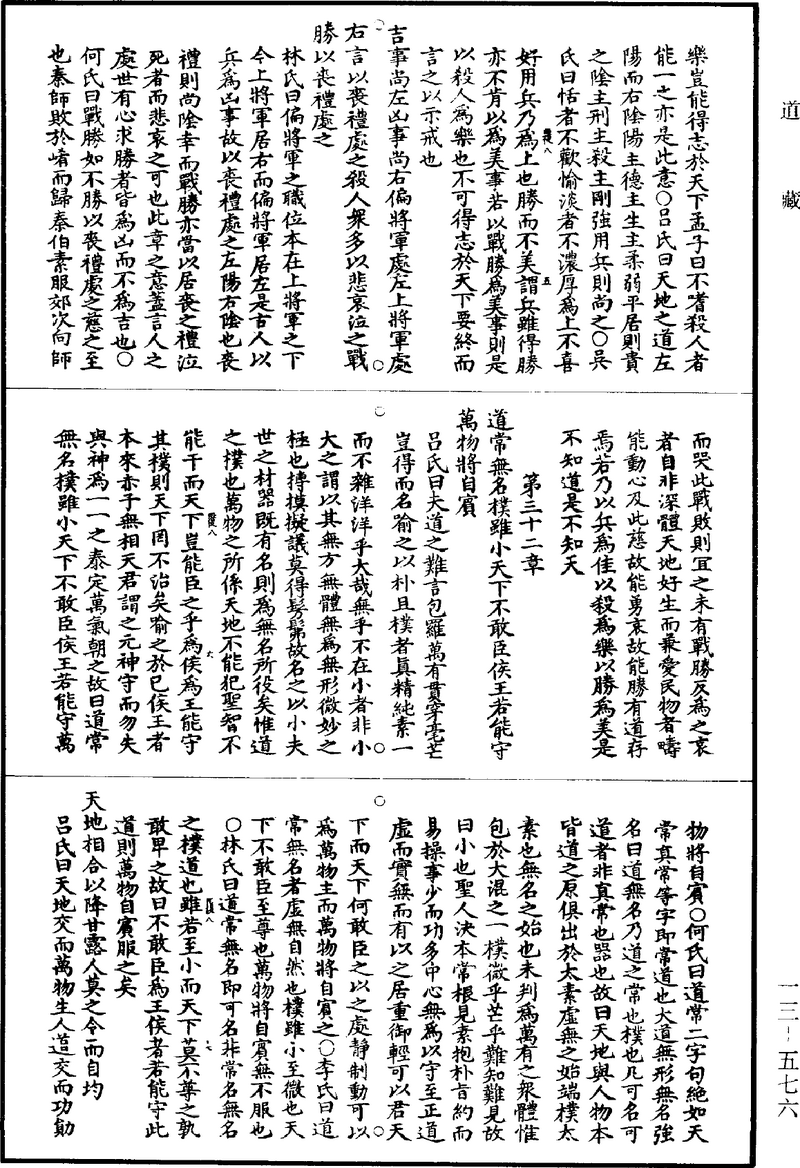 道藏
樂豈能得志於天下孟子曰不嗜殺人者
能一之亦是此意〇呂氏曰天地之道左
陽而右陰陽主德主生主柔弱平居則貴
之陰主刑主殺主剛強用兵則尚之〇吳
氏曰恬者不歡愉淡者不濃厚爲上不喜
好用兵乃爲上也勝而不美謂兵雖得勝
亦不肯以爲美事若以戰勝爲美事則是
以殺人爲樂也不可得志於天下要終而
言之以示戒也
吉事尚左凶事尚右偏將軍處左上將軍處
右言以喪禮處之殺人衆多以悲哀泣之戰
勝以喪禮處之
林氏曰偏將軍之職位本在上將軍之下
今上將軍居右而偏將軍居左是古人以
兵爲凶事故以喪禮處之左陽右陰也喪
禮則尚陰幸而戰勝亦當以居喪之禮泣
死者而悲哀之可也此章之意蓋言人之
處世有心求勝者皆爲凶而不爲吉也〇
何氏曰戰勝如不勝以喪禮處之慈之至
也秦師敗於崤而歸秦伯素服郊次向師
而哭此戰敗則宜之未有戰勝反爲之哀
者自非深體天地好生而兼愛民物者疇
能動心及此慈故能勇哀故能勝有道存
焉若乃以兵爲佳以殺爲樂以勝爲美是
不知道是不知天
第三十二章
道常無名樸雖小天下不敢臣侯王若能守
萬物將自賓
呂氏曰夫道之難言包羅萬有貫穿毫芒
豈得而名喻之以朴且樸者眞精純素一
而不雜洋洋乎大哉無乎不在小者非小
大之謂以其無方無體無爲無形微妙之
極也摶摸擬議莫得髣髴故名之以小夫
世之材器既有名則爲無名所役矣惟道
之樸也萬物之所係天地不能犯聖智不
能干而天下豈能臣之乎爲侯爲王能守
其樸則天下罔不治矣喻之於己侯王者
本來赤子無相天君謂之元神守而勿失
與神爲一一之泰定萬氣朝之故曰道常
無名樸雖小天下不敢臣侯王若能守萬
物將自賓〇何氏曰道常二字句絕如天
常真常等字即常道也大道無形無名強
名曰道無名乃道之常也樸也凡可名可
道者非真常也器也故曰天地與人物本
皆道之原俱出於太素虛無之始端樸太
素也無名之始也未判爲萬有之衆體惟
包於大混之一樸微乎芒乎難知難見故
曰小也聖人決本常根見素抱朴旨約而
易操事少而功多中心無爲以守至正道
虛而實無而有以之居重御輕可以君天
下而天下何敢臣之以之處静制動可以
爲萬物主而萬物將自賓之〇李氏曰道
常無名者虛無自然也樸雖小至微也天
下不敢臣至尊也萬物將自賓無不服也
〇林氏曰道常無名即可名非常名無名
之樸道也雖若至小而天下莫不尊之孰
敢卑之故曰不敢臣爲王侯者若能守此
道則萬物自賓服之矣
天地相合以降甘露人莫之令而自均
呂氏曰天地交而萬物生人道交而功勛
一三-五七六